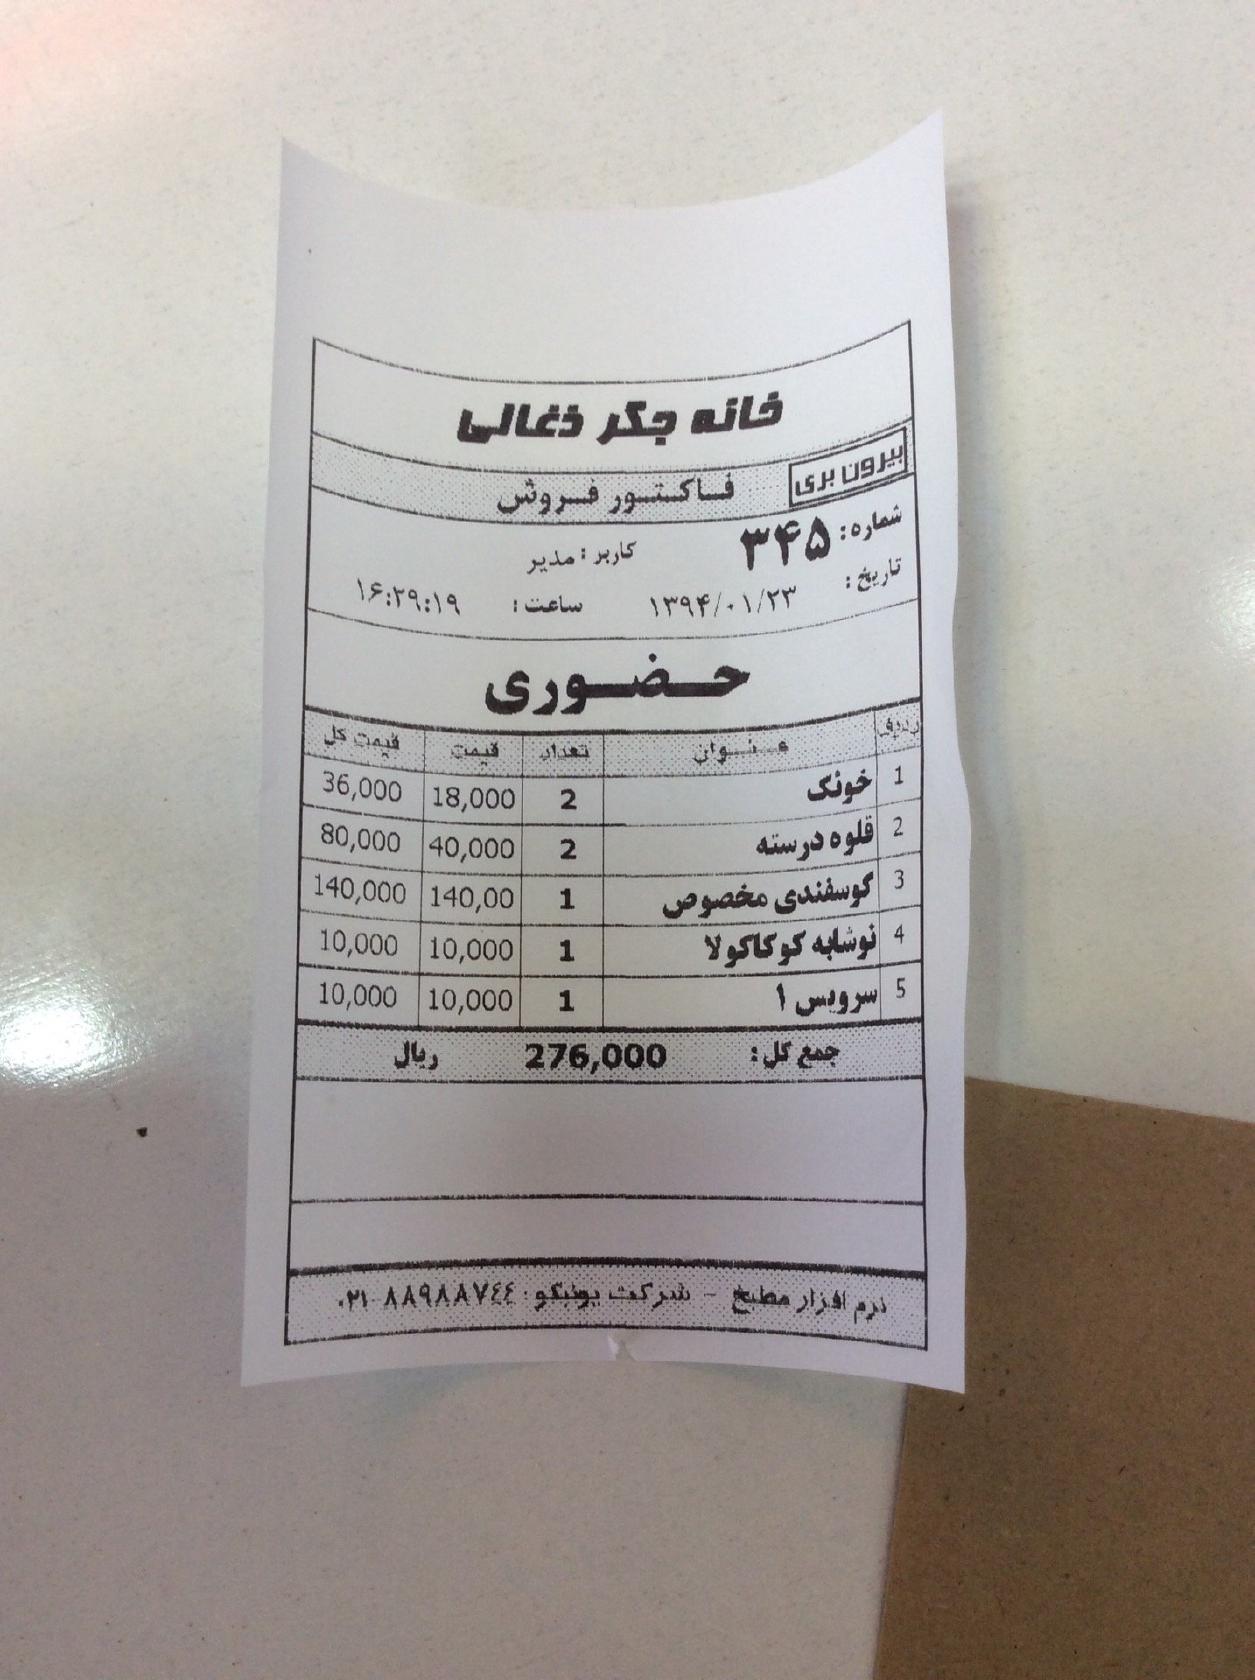 خانه جگر ذغالی
بیرون بری
فاکتور فروش
شماره: ۳۴۵ کاربر: مدیر
تاریخ: ۱۳۹۴/۰۱/۲۳ ساعت: ۱۶:۲۹:۱۹
حضوری
ردیف عنوان تعداد قیمت قیمت کل
1 خونک 2 18,000 36,000
2 قلوه درسته 2 40,000 80,000
3 گوسفندی مخصوص 1 140,00 140,000
4 نوشابه کوکاکولا 1 10,000 10,000
5 سرویس ۱ 1 10,000 10,000
جمع کل: 276,000 ریال
نرم افزار مطبخ - شرکت یونیکو: ۸۸۹۸۸۷۴۴-۰۲۱